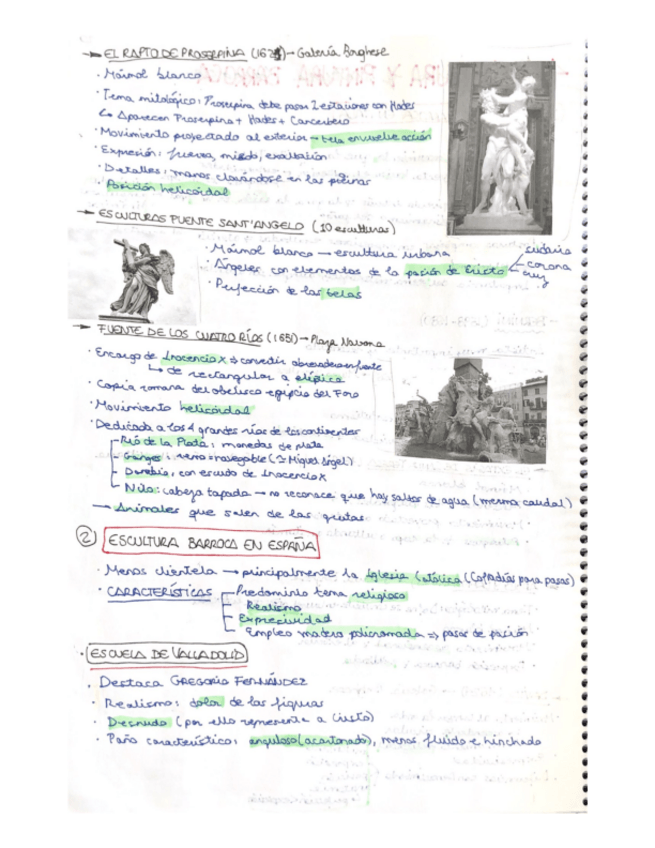 → EL RAPTO DE PROSERPINA (1621) → Galería Borghese
· Mármol blanco
· Tema mitológico: Proserpina debe pasar 2 estaciones con Hades
↳ Aparecen Proserpina + Hades + Cancerbero
· Movimiento proyectado al exterior → tela envuelve acción
· Expresión: fuerza, miedo, exaltación
· Detalles: manos clavándose en las piernas
· Posición helicoidal
→ ESCULTURAS PUENTE SANT'ANGELO (10 esculturas)
· Mármol blanco → escultura urbana
· Ángeles con elementos de la pasión de Cristo
sudario
corona
cruz
· Perfección de las telas
→ FUENTE DE LOS CUATRO RÍOS (1651) → Plaza Navona
· Encargo de Inocencio X ⇒ convertir abrevadero en fuente
↳ de rectangular a elíptica
· Copia romana del obelisco egipcio del Foro
· Movimiento helicoidal
· Dedicada a los 4 grandes ríos de los continentes
Río de la Plata: monedas de plata
Ganges: remo = navegable (≃ Miguel Ángel)
Danubio, con escudo de Inocencio X
Nilo: cabeza tapada → no reconoce que hay saltos de agua (merma caudal)
→ Animales que salen de las grutas
2) ESCULTURA BARROCA EN ESPAÑA
· Menos clientela → principalmente la Iglesia Católica (Cofradías para pasos)
· CARACTERÍSTICAS
Predominio tema religioso
Realismo
Expresividad
Empleo madera policromada ⇒ pasos de pasión
· ESCUELA DE VALLADOLID
· Destaca GREGORIO FERNÁNDEZ
· Realismo: dolor de las figuras
· Desnudo (por ello representa a Cristo)
· Paño característico: anguloso (acartonado), menos fluido e hinchado